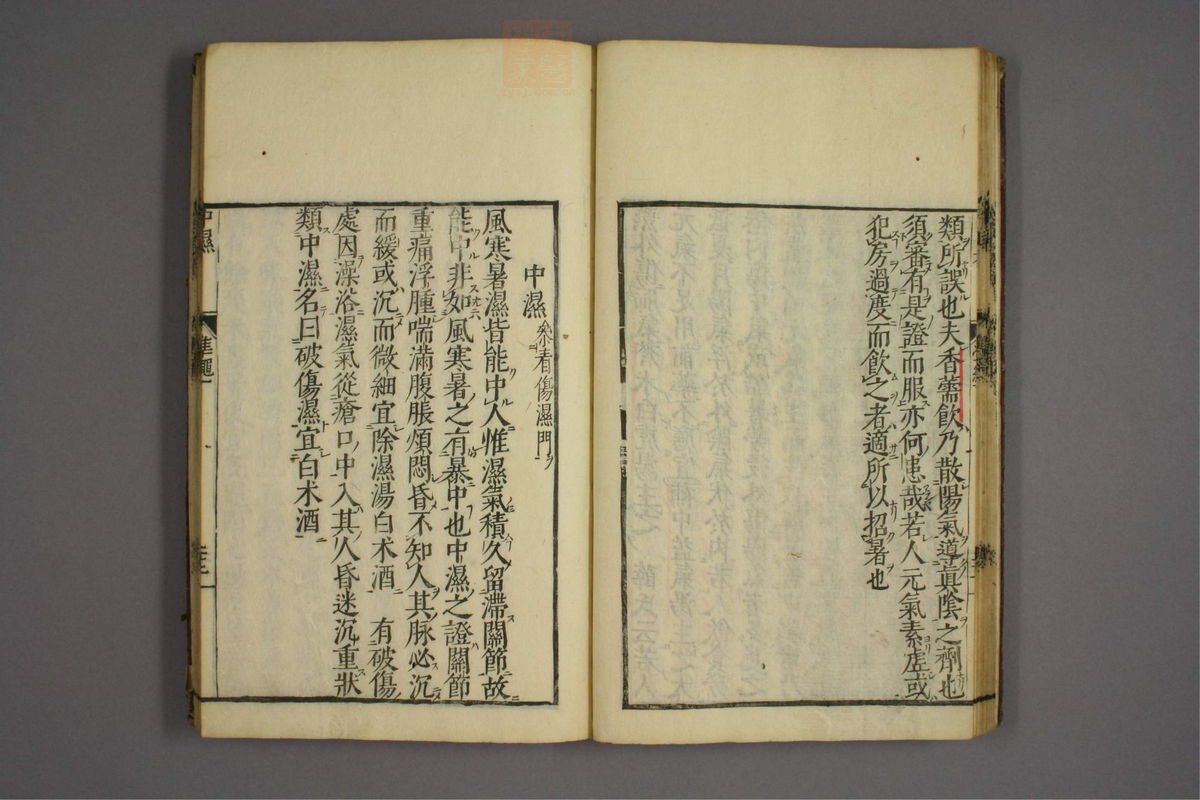 類所誤也夫香薷飲乃散陽氣導眞陰之劑也
須審有是證而服亦何患哉若人元氣素虛或
犯房過度而飲之者適所以招暑也
中濕 參看傷濕門
風寒暑濕皆能中人惟濕氣積久留滯關節故
能中非如風寒暑之有暴中也中濕之證關節
重痛浮腫喘滿腹脹煩悶昏不知人其脉必沉
而緩或沉而微細宜除濕湯白朮酒 有破傷
處因澡浴濕氣從瘡口中入其人昏迷沉重狀
類中濕名曰破傷濕宜白朮酒
中濕